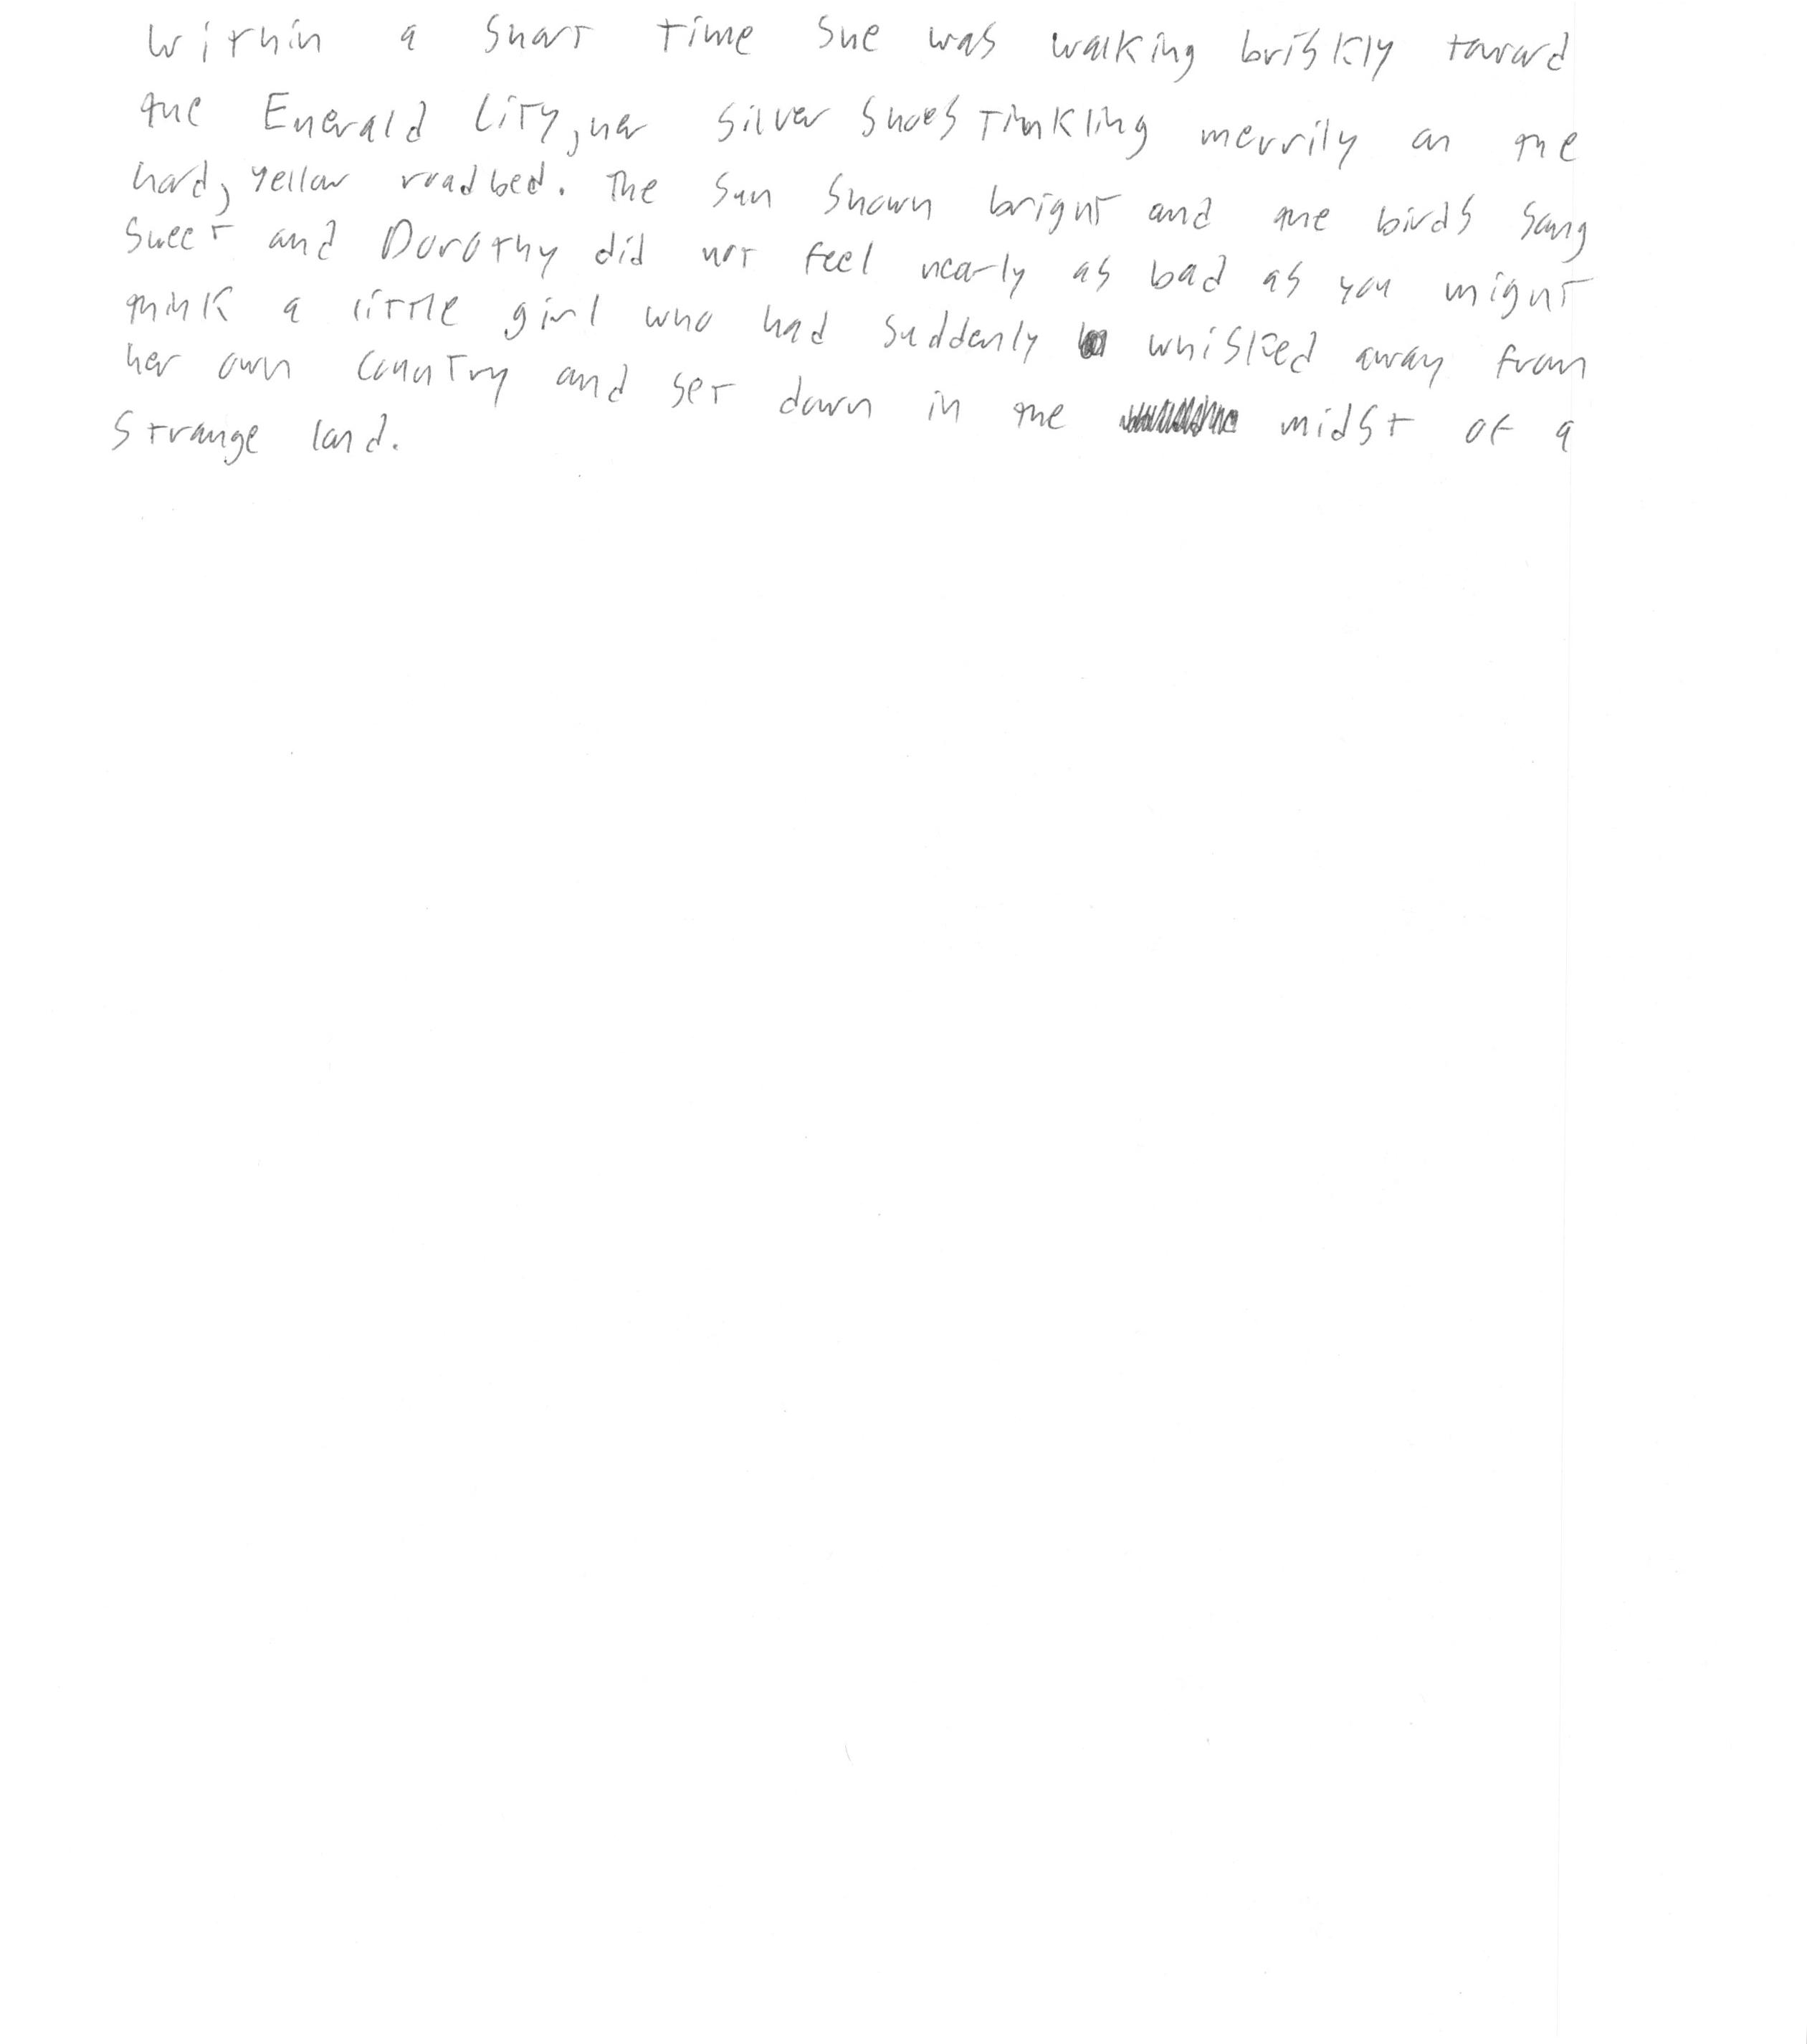 Within a short time she was walking briskly toward
the Emerald City, her silver shoes tinkling merrily on the
hard, yellow roadbed. The sun shown bright and the birds sang
sweet and Dorothy did not feel nearly as bad as you might
think a little girl who had suddenly whisked away from
her own country and set down in the midst of a
strange land.